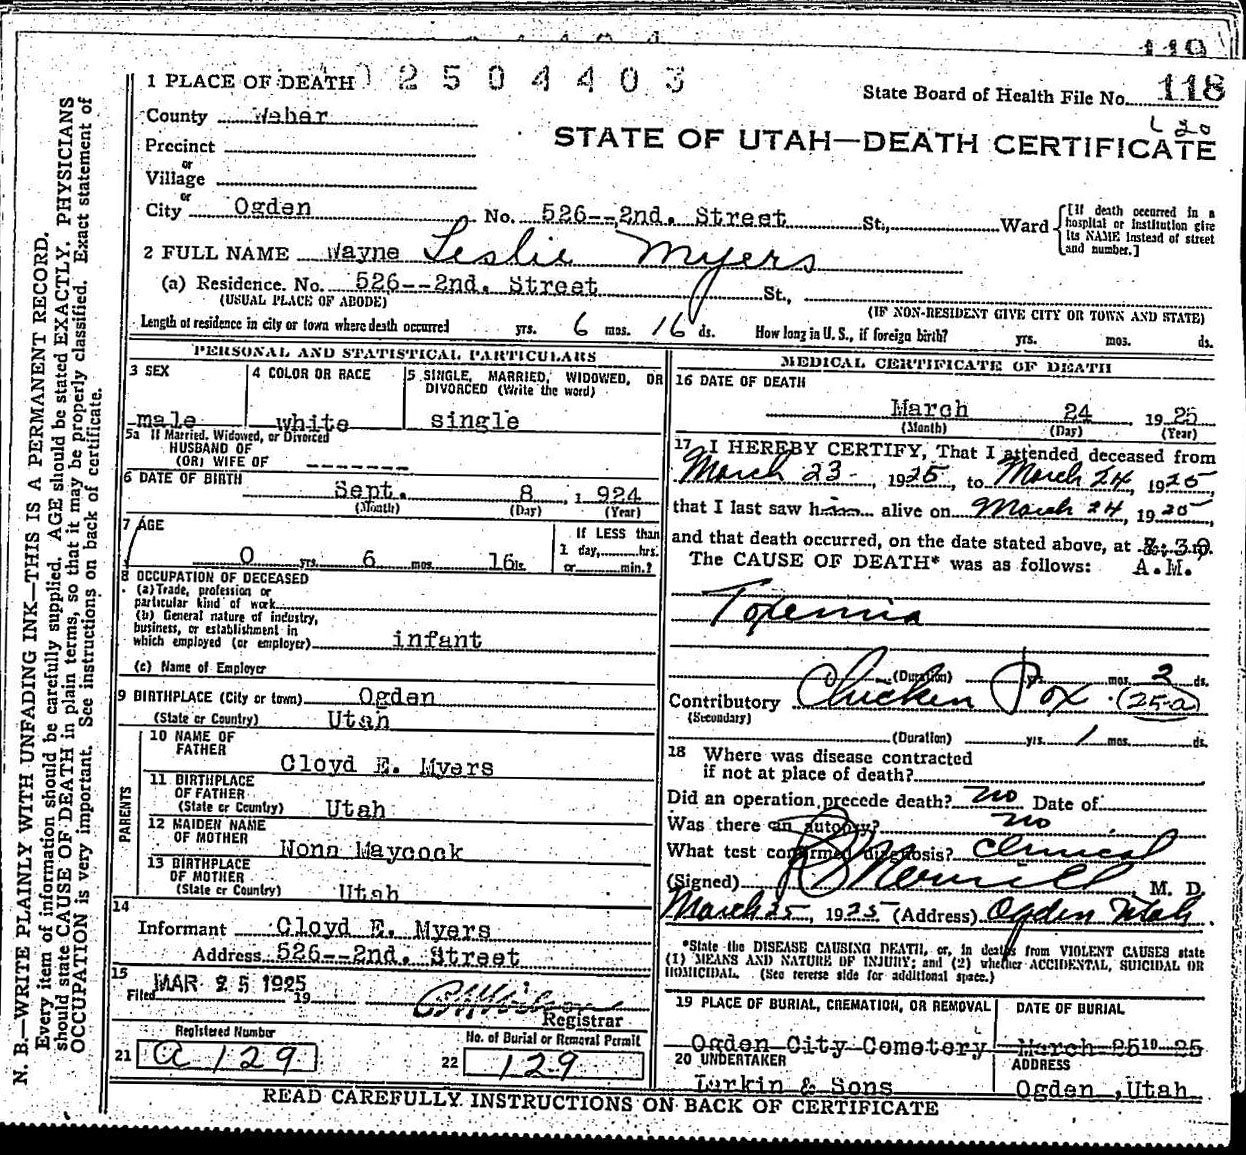 119
1 PLACE OF DEATH 02504403
State Board of Health File No. 118
County Weber
L 20
STATE OF UTAH—DEATH CERTIFICATE
Precinct
or
Village
or
City Ogden No. 526--2nd. Street St., Ward
[If death occurred in a hospital or institution give its NAME instead of street and number.]
2 FULL NAME Wayne Leslie Myers
(a) Residence. No. 526--2nd. Street St.,
(USUAL PLACE OF ABODE) (IF NON-RESIDENT GIVE CITY OR TOWN AND STATE)
Length of residence in city or town where death occurred yrs. 6 mos. 16 ds. How long in U. S., if foreign birth? yrs. mos. ds.
PERSONAL AND STATISTICAL PARTICULARS
3 SEX
male
4 COLOR OR RACE
white
5 SINGLE, MARRIED, WIDOWED, OR
DIVORCED (Write the word)
single
5a If Married, Widowed, or Divorced
HUSBAND OF
(OR) WIFE OF -------
6 DATE OF BIRTH
Sept. 8, 1924
(Month) (Day) (Year)
7 AGE
0 yrs. 6 mos. 16 ds.
If LESS than
1 day, hrs.
or min.?
8 OCCUPATION OF DECEASED
(a) Trade, profession or
particular kind of work
(b) General nature of industry,
business, or establishment in
which employed (or employer) infant
(c) Name of Employer
9 BIRTHPLACE (City or town) Ogden
(State or Country) Utah
PARENTS
10 NAME OF
FATHER
Cloyd E. Myers
11 BIRTHPLACE
OF FATHER
(State or Country) Utah
12 MAIDEN NAME
OF MOTHER
Nona Maycock
13 BIRTHPLACE
OF MOTHER
(State or Country) Utah
14
Informant Cloyd E. Myers
Address 526--2nd. Street
15
Filed MAR 25 1925 19
Registrar
Registered Number
21 a 129
No. of Burial or Removal Permit
22 129
MEDICAL CERTIFICATE OF DEATH
16 DATE OF DEATH
March 24 1925
(Month) (Day) (Year)
17 I HEREBY CERTIFY, That I attended deceased from
March 23, 1925, to March 24, 1925
that I last saw him alive on March 24, 1925,
and that death occurred, on the date stated above, at 8:30
The CAUSE OF DEATH* was as follows: A.M.
Toxemia
(Duration) yrs. mos. 2 ds.
Contributory Chicken Pox (25-a)
(Secondary)
(Duration) yrs. 1 mos. ds.
18 Where was disease contracted
if not at place of death?
Did an operation precede death? no Date of
Was there an autopsy? no
What test confirmed diagnosis? Clinical
(Signed) M. D.
March 25, 1925 (Address) Ogden Utah.
*State the DISEASE CAUSING DEATH, or, in deaths from VIOLENT CAUSES state
(1) MEANS AND NATURE OF INJURY; and (2) whether ACCIDENTAL, SUICIDAL OR
HOMICIDAL. (See reverse side for additional space.)
19 PLACE OF BURIAL, CREMATION, OR REMOVAL
Ogden City Cemetery
DATE OF BURIAL
March 25 19 25
20 UNDERTAKER
Larkin & Sons
ADDRESS
Ogden, Utah
READ CAREFULLY INSTRUCTIONS ON BACK OF CERTIFICATE
N. B.—WRITE PLAINLY WITH UNFADING INK—THIS IS A PERMANENT RECORD.
Every item of information should be carefully supplied. AGE should be stated EXACTLY. PHYSICIANS
should state CAUSE OF DEATH in plain terms, so that it may be properly classified. Exact statement of
OCCUPATION is very important. See instructions on back of certificate.